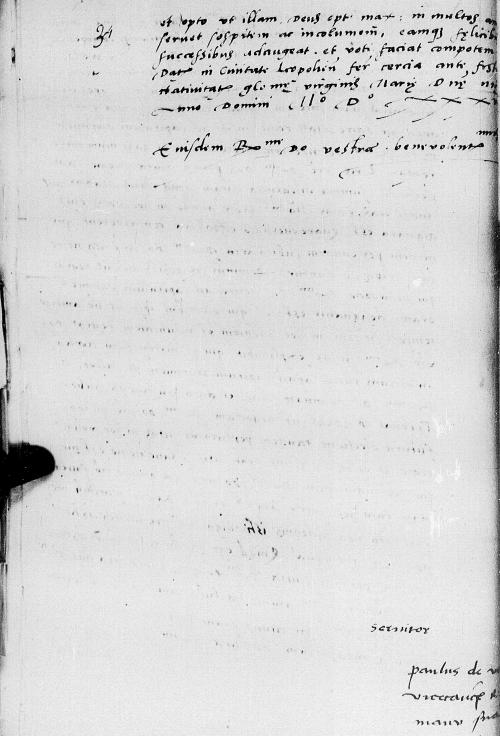 94
et opto ut illam, Deus opt: max: in multos
servet sospitem ac incolumem, eamq3 felicib
successibus adaugeat. et voti faciat compotem
Dat in Civitate Leopolien fer tercia ante fest
Nativitat glo virginis Marie D
Anno Domini M° D° XXX
Eiusdem R me Do vestrae benevolent
servitor
paulus de
vicecancel
manu